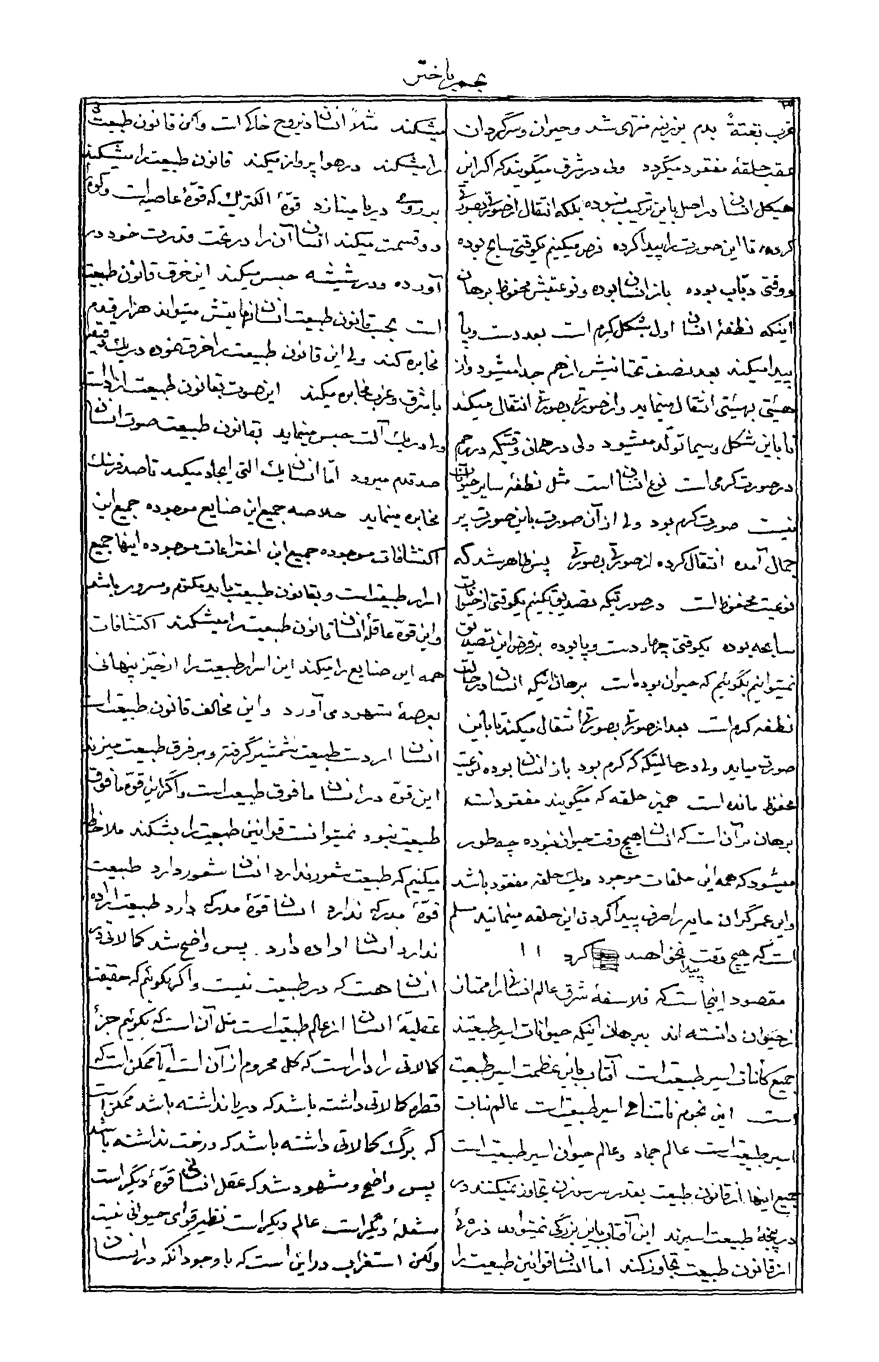 نجم باختر
3
غرب بغتةً بدم بوزینه منتهی شد و حیوان و سرگردان
عقب حلقهٔ مفقود میگردد ولی در شرق میگویند که اگر این
هیکل انسان در اصل باین ترکیب نبوده بلکه انتقال از صورتی بصورتی
کرده تا این صورت را پیدا کرده فرض میکنیم یکوقتی سابح بوده
و وقتی دبّاب بوده باز انسان بوده و نوعیتش محفوظ برهان
اینکه نطفهٔ انسان اول بشکل کرم است بعد دست و پا
پیدا میکند بعد نصف تحتانیش از هم جدا میشود و از
هیئتی بهیئتی انتقال مینماید و از صورتی بصورتی انتقال میکند
تا باین شکل و سیما تولّد میشود ولی در همان وقتیکه در رحم
در صورت کرمی است نوع انسان است مثل نطفهٔ سایر حیوانات
نیست صورت کرم بود ولی از آن صورت باین صورت پر
جمال آمده انتقال کرده از صورتی بصورتی پس ظاهر شد که
نوعیت محفوظ است در صورتیکه تصدیق بکنیم یکوقتی از حیوانات
سابحه بوده یکوقتی چهار دست و پا بوده بر فرض این تصدیق
نمیتوانیم بگوئیم که حیوان بوده است برهان اینکه انسان در حالت
نطفه کرم است بعد از صورتی بصورتی انتقال میکند تا باین
صورت میاید ولی در حالتیکه که کرم بود باز انسان بوده نوعیت
محفوظ مانده است همین حلقه که میگویند مفقود است
برهان بر آن است که انسان هیچ وقت حیوان نبوده چه طور
میشود که همه این حلقات موجود و یک حلقه مفقود باشد
و این عمر گران مایه را صرف پیدا کردن این حلقه مینمائید مسلم
است که هیچ وقت پیدا نخواهند کرد !!
مقصود اینجا است که فلاسفهٔ شرق عالم انسانی را ممتاز
از حیوان دانسته اند ببرهان اینکه حیوانات اسیر طبیعتند
جمیع کائنات اسیر طبیعت است آفتاب باین عظمت اسیر طبیعت
است این نجوم نامتناهی اسیر طبیعت است عالم نبات
اسیر طبیعت است عالم جماد و عالم حیوان اسیر طبیعت است
جمیع اینها از قانون طبیعت بقدر سر سوزن تجاوز نمیکنند در
در پنجهٔ طبیعت اسیرند این آفتاب باین بزرگی نمیتواند ذرّه ئی
از قانون طبیعت تجاوز کند اما انسان قوانین طبیعت را
میشکند مثلاً انسان ذیروح خاکی است و این قانون طبیعت
را میشکند در هوا پرواز میکند قانون طبیعت را میشکند
بر روی دریا میتازد قوّهٔ الکتریک که قوّهٔ عاصی است و کوه
دو قسمت میکند انسان آن را در تحت قدرت خود در
آورده و در شیشه حبس میکند این خرق قانون طبیعت
است بحسب قانون طبیعت انسان نهایتش میتواند هزار قدم
مخابره کند ولی این قانون طبیعت را خرق نموده در یک دقیقه
با شرق و غرب مخابره میکند این صوت بقانون طبیعت آزاد است
ولی در یک آلت حبس مینماید بقانون طبیعت صوت انسان
صد قدم میرود امّا انسان یک آلتی ایجاد میکند تا صد فرسنگ
مخابره مینماید خلاصه جمیع این صنایع موجوده جمیع این
اکتشافات موجوده جمیع این اختراعات موجوده اینها جمیع
اسرار طبیعت است و بقانون طبیعت باید مکتوم و مستور باشد
و این قوّهٔ عاقلهٔ انسان قانون طبیعت را میشکند اکتشافات
همه این صنایع را میکند این اسرار طبیعت را از حیّز پنهانی
بعرصهٔ شهود می آورد و این مخالف قانون طبیعت است
انسان از دست طبیعت شمشیر گرفته و بر فرق طبیعت میزند
این قوّه در انسان ما فوق طبیعت است و اگر این قوّه ما فوق
طبیعت نبود نمیتوانست قوانین طبیعت را بشکند ملاحظه
میکنیم که طبیعت شعور ندارد انسان شعور دارد طبیعت
قوّهٔ مدرکه ندارد انسان قوّهٔ مدرکه دارد طبیعت اراده
ندارد انسان اراده دارد پس واضح شد کمالاتی در
انسان هست که در طبیعت نیست و اگر بگوئیم که حقیقت
عقلیهٔ انسان از عالم طبیعت است مثل آن است که بگوئیم جزء
کمالاتی را دارا است که کل محروم از آن است آیا ممکن است که
قطره کمالاتی داشته باشد که دریا نداشته باشد ممکن است
که برگ کمالاتی داشته باشد که درخت نداشته باشد
پس واضح و مشهود شد که عقل انسانی قوّهٔ دیگر است
شعلهٔ دیگر است عالم دیگر است نظیر قوای حیوانی نیست
ولکن استغراب در این است که با وجود آنکه در انسان